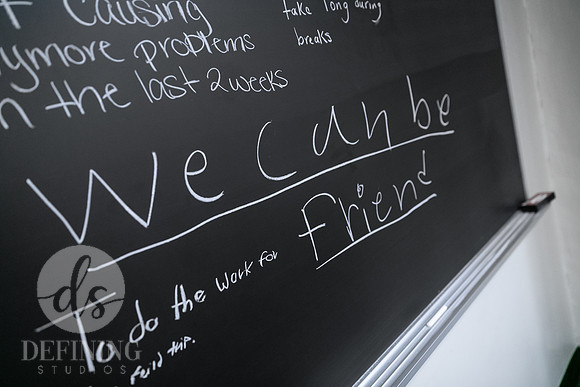 Causing
take long during
ymore problems
breaks
n the last 2 weeks
We can be
Friend
To do the work for
feild trip.
ds
DEFINING
STUDIOS